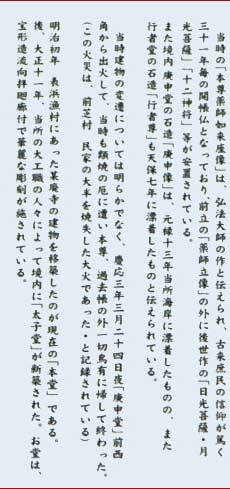 当時の「本尊薬師如来座像」は、弘法大師の作と伝えられ、古来庶民の信仰が篤く
三十一年毎の開帳仏となっており、前立の「薬師立像」の外に後世作の「日光菩薩」・月
光菩薩」「十二神将」等が安置されている。
また境内庚申堂の石造「庚申像」は、元禄十三年当所海岸に漂着したものの、また
行者堂の石造「行者尊」も天保七年に漂着したものと伝えられている。
当時建物の変遷については明らかでなく、慶応三年三月二十四日夜「庚申堂」前西
角から出火して、当時も類焼の厄に遭い本尊、過去帳の外一切烏有に帰して終わった。
(この火災は、前芝村 民家の大半を焼失した大火であった・と記録されている)
明治初年 表浜漁村にあった某廃寺の建物を移築したのが現在の「本堂」である。
後、大正十一年、当所の大工職の人々によって境内に「太子堂」が新築された。お堂は、
宝形造流向拝廻廊付で華麗な彫刻が施されている。